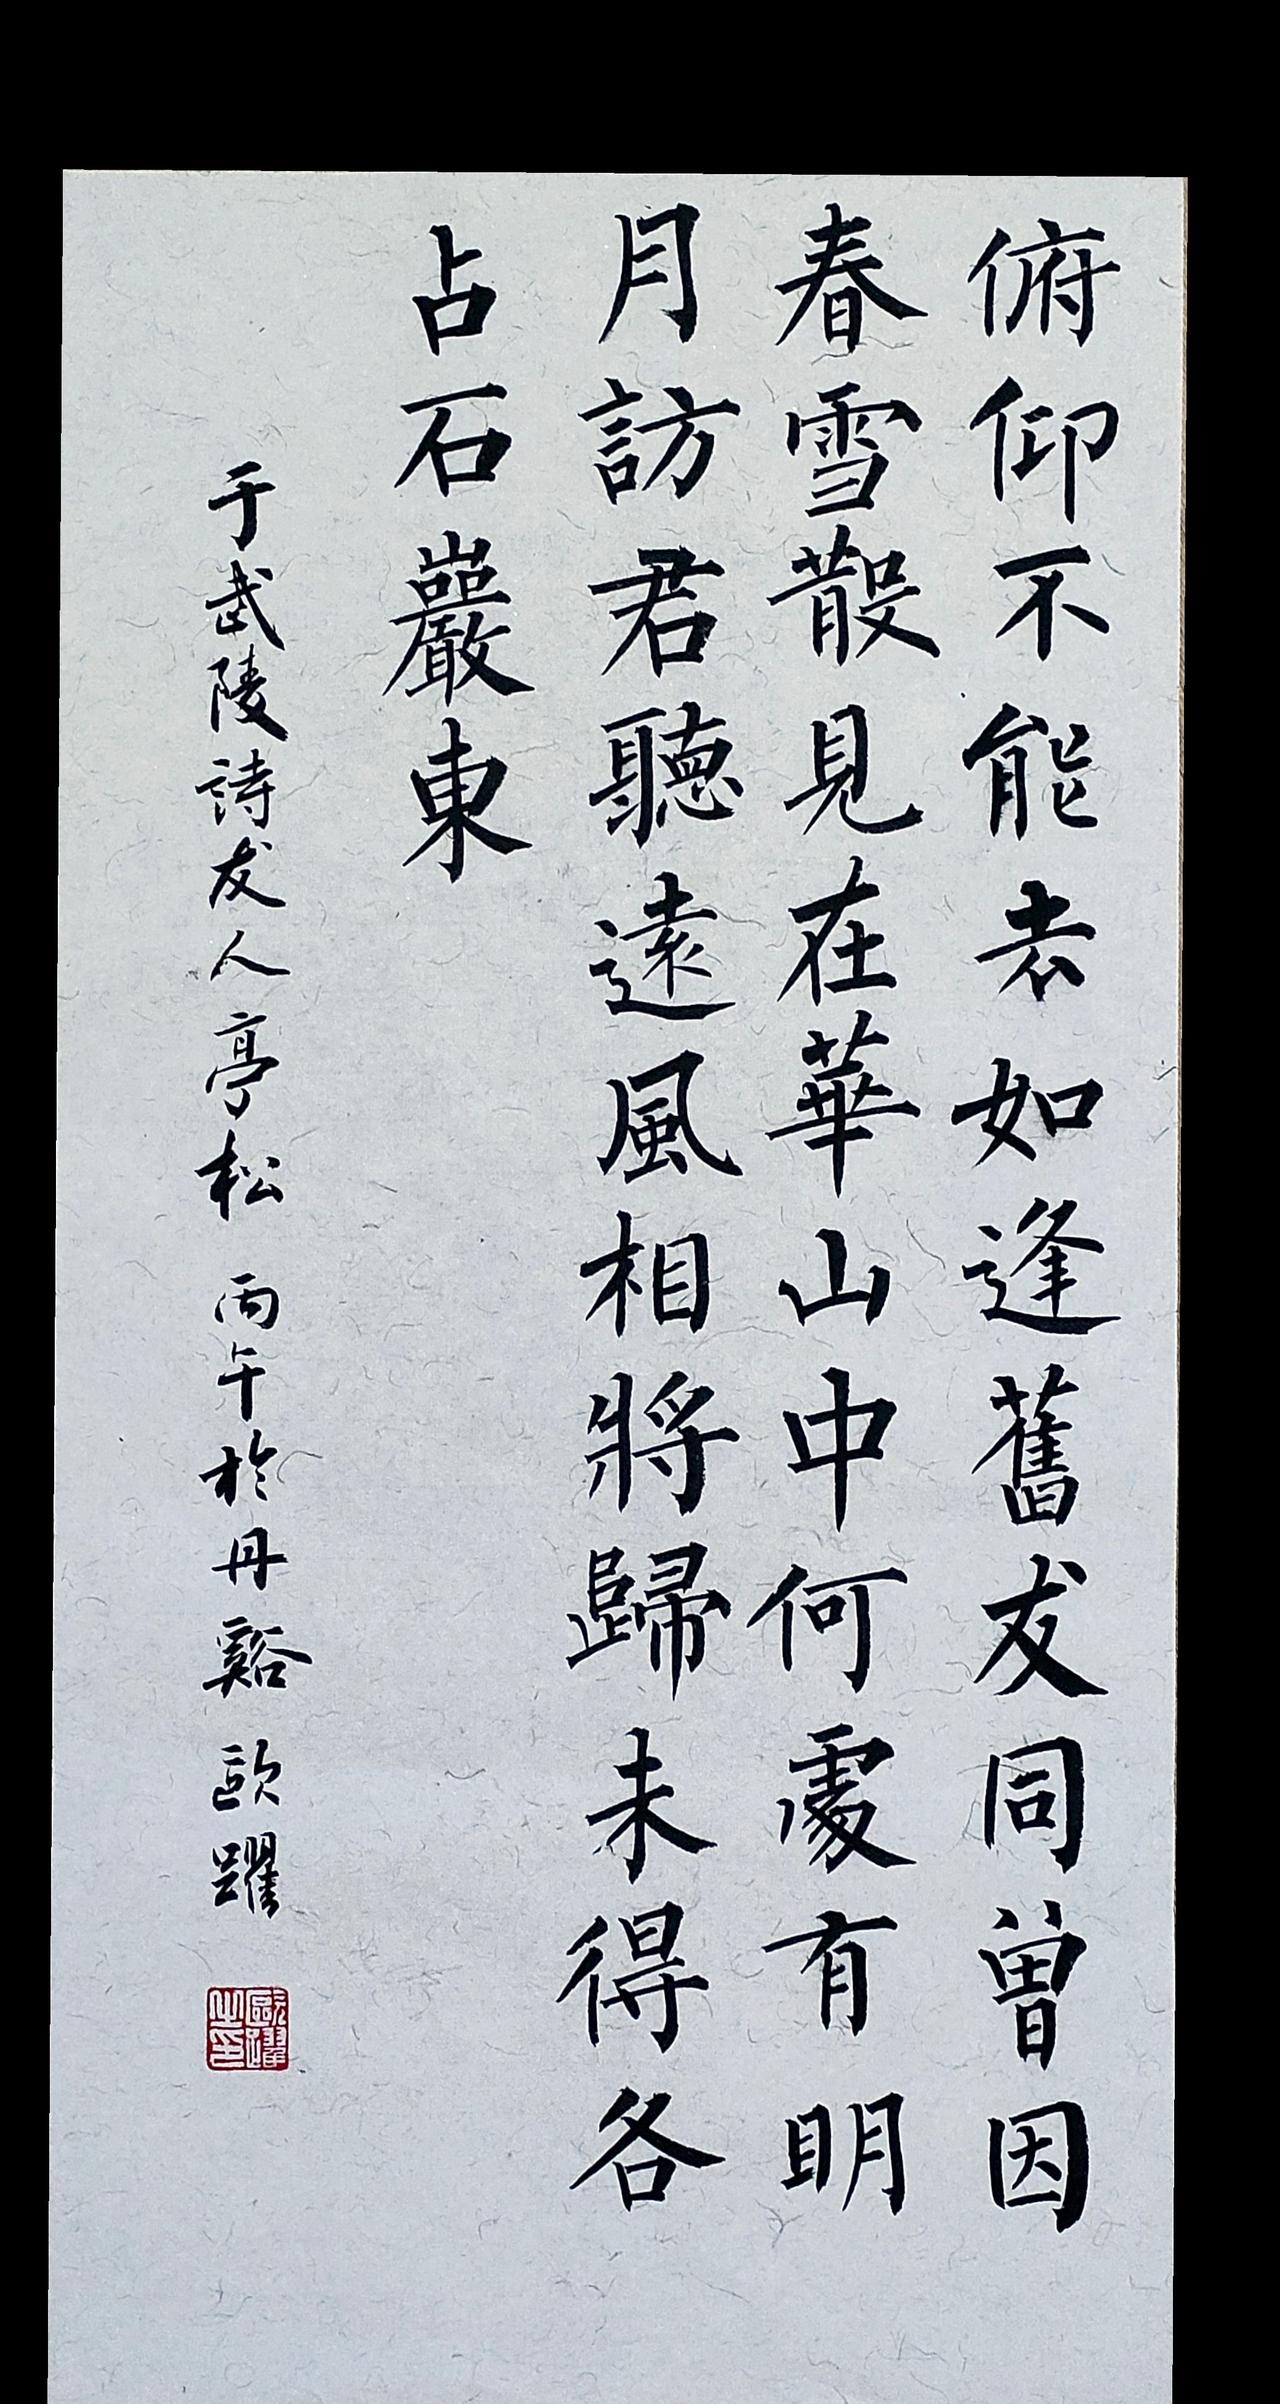 俯仰不能去如逢舊友同曾因
春雪散見在華山中何處有明
月訪君聽遠風相將歸未得各
占石巖東
于武陵詩友人亭松 丙午於丹谿 歐躍
歐躍之印